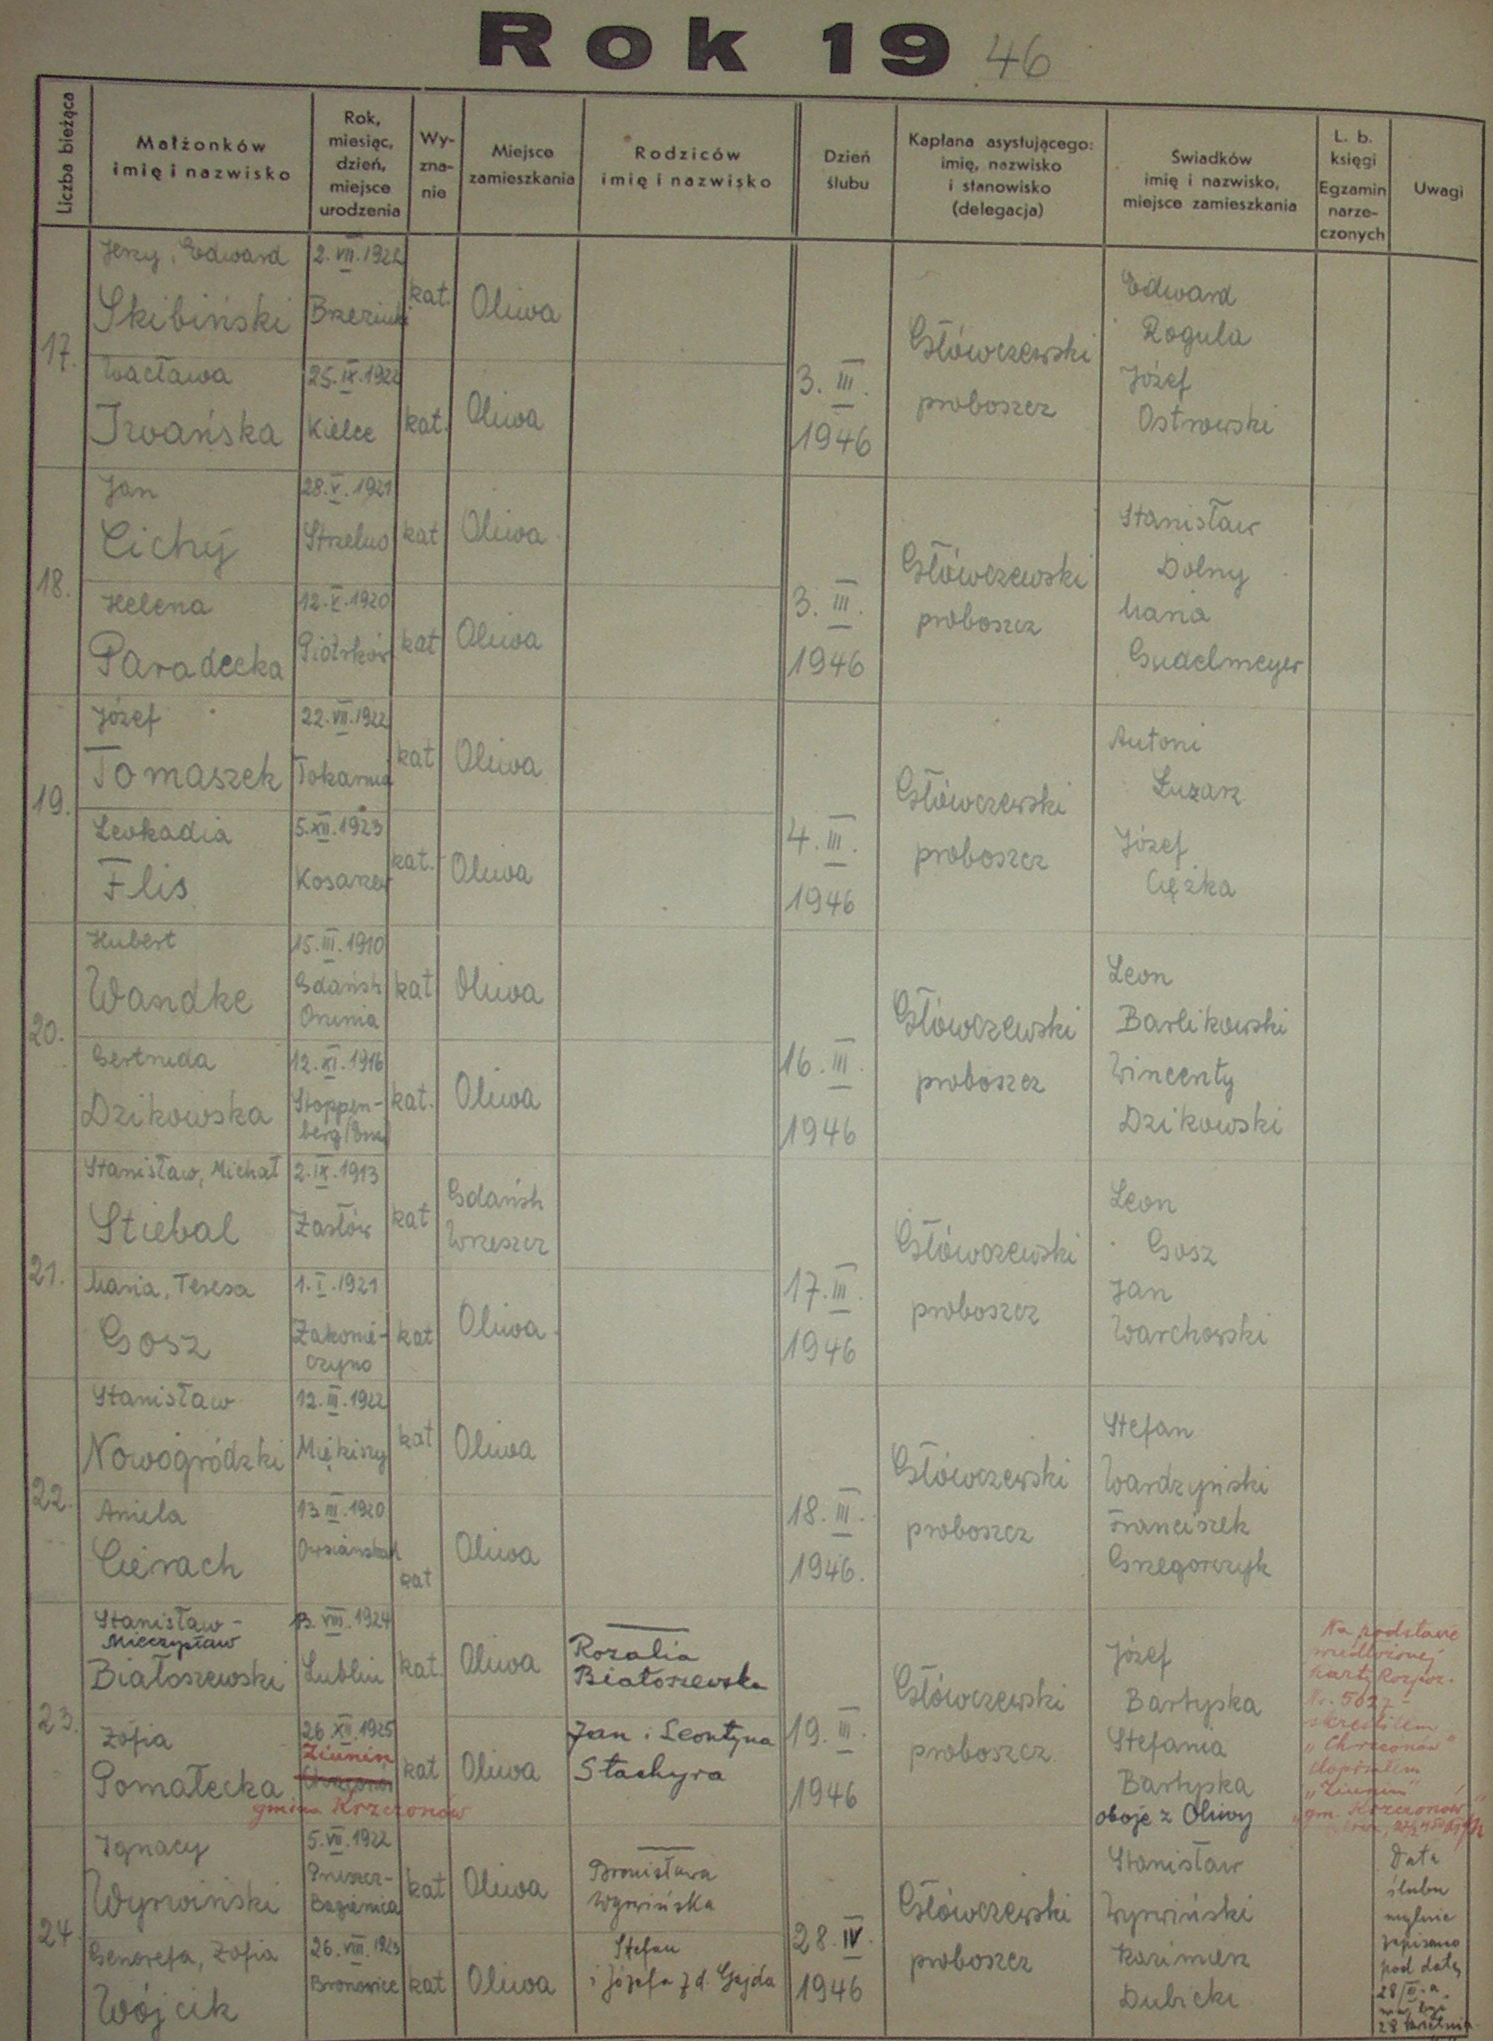 Rok 19 46
Liczba bieżąca
Małżonków
imię i nazwisko
Rok,
miesiąc,
dzień,
miejsce
urodzenia
Wy-
zna-
nie
Miejsce
zamieszkania
Rodziców
imię i nazwisko
Dzień
ślubu
Kapłana asystującego:
imię, nazwisko
i stanowisko
(delegacja)
Świadków
imię i nazwisko,
miejsce zamieszkania
L. b.
księgi
Egzamin
narze-
czonych
Uwagi
17.
Jerzy, Edward
Skibiński
2.VII.1922
kat.
Oliwa
Wacława
Irwańska
25.IX.1922
Kielce
kat.
Oliwa
3.III.
1946
Główczewski
proboszcz
Edward
Rogula
Józef
Ostrowski
18.
Jan
Cichy
28.V.1921
Strzelno
kat
Oliwa
Helena
Paradecka
12.X.1920
Piotrków
kat
Oliwa
3.III.
1946
Główczewski
proboszcz
Stanisław
Dolny
Maria
Gudelmeyer
19.
Józef
Tomaszek
22.VII.1922
Tokarnia
kat
Oliwa
Leokadia
Flis
5.XII.1923
Kosarzew
kat.
Oliwa
4.III.
1946
Główczewski
proboszcz
Antoni
Łuzarz
Józef
Ciężka
20.
Hubert
Wandke
15.III.1910
Gdańsk
Orunia
kat
Oliwa
Gertruda
Dzikowska
12.XI.1916
Stoppen-
berg
kat.
Oliwa
16.III.
1946
Główczewski
proboszcz
Leon
Barlikowski
Wincenty
Dzikowski
21.
Stanisław, Michał
Stiebal
2.IX.1913
Zasłów
kat
Gdańsk
Wrzeszcz
Maria, Teresa
Gosz
1.I.1921
Zakomi-
czyno
kat
Oliwa
17.III.
1946
Główczewski
proboszcz
Leon
Gosz
Jan
Warchowski
22.
Stanisław
Nowogródzki
12.III.1922
Miękiszy
kat
Oliwa
Aniela
Cierach
13.III.1920
kat
Oliwa
18.III.
1946.
Główczewski
proboszcz
Stefan
Wardzyński
Franciszek
Grzegorczyk
23.
Stanisław-
Mieczysław
Białoszewski
13.VIII.1924
Lublin
kat
Oliwa
Rozalia
Białoszewska
Zofia
Pomałecka
26.XII.1925
Ziunin
gmina Krzczonów
kat
Oliwa
Jan i Leontyna
Stachyra
19.III.
1946
Główczewski
proboszcz
Józef
Bartyska
Stefania
Bartyska
oboje z Oliwy
Na podstawie
przedłożonej
karty Rozpoz.
Nr. 5627-
skreśliłem
"Chrzconów"
dopisałem
"Ziunin"
"gm. Krzczonów"
24.
Ignacy
Wyrwiński
5.VII.1922
Pruszcz-
Bagienica
kat
Oliwa
Bronisława
Wyrwińska
Genowefa, Zofia
Wójcik
26.VIII.1923
Bronowice
kat
Oliwa
Stefan
i Józefa z d. Gajda
28.IV.
1946
Główczewski
proboszcz
Stanisław
Wyrwiński
Kazimierz
Dubicki
Data
ślubu
mylnie
zapisano
pod datą
28/III. a
28 kwietnia